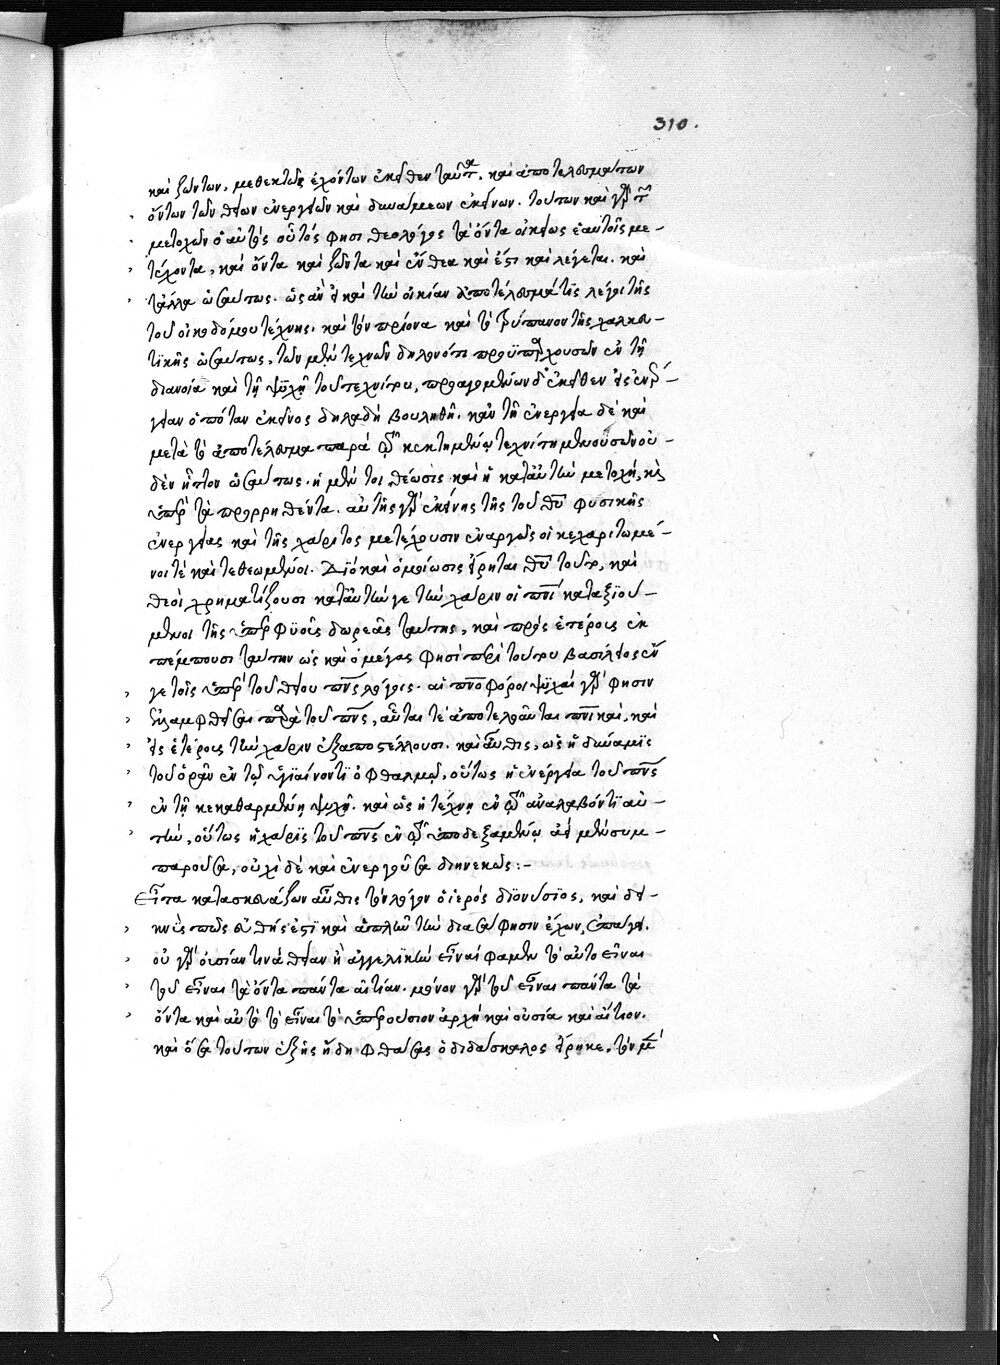 310.
καὶ ζώντων, μεθεκτῶς ἐχόντων ἐκεῖθεν ταῦτα, καὶ ἀποτελεσμάτων
ὄντων τῶν θείων ἐνεργειῶν καὶ δυνάμεων ἐκείνων. τούτων καὶ γὰρ τῶν
μετοχῶν ὁ αὐτὸς οὗτός φησι θεολόγος τὰ ὄντα οἰκείως ἑαυτοῖς με-
τέχοντα, καὶ ὄντα καὶ ζῶντα καὶ ἔνθεα καὶ ἔστι καὶ λέγεται. καὶ
τἄλλα ὡσαύτως. ὡς ἂν εἰ καὶ τὴν οἰκίαν ἀποτέλεσμά τις λέγοι τῆς
τοῦ οἰκοδόμου τέχνης. καὶ τὸν πρίονα καὶ τὸ τρύπανον τῆς χαλκευ-
τικῆς ὡσαύτως, τῶν μὲν τεχνῶν δηλονότι προϋπαρχουσῶν ἐν τῇ
διανοίᾳ καὶ τῇ ψυχῇ τοῦ τεχνίτου, προαγομένων δ' ἐκεῖθεν εἰς ἐνέρ-
γειαν ὁπόταν ἐκεῖνος δηλαδὴ βουληθῇ. κἀν τῇ ἐνεργείᾳ δὲ καὶ
μετὰ τὸ ἀποτέλεσμα παρὰ τῷ κεκτημένῳ τεχνίτῃ μενουσῶν οὐ-
δὲν ἧττον ὡσαύτως. ἡ μέν τοι θέωσις καὶ ἡ κατ' αὐτὴν μετοχή, καὶ
ὑπὲρ τὰ προρρηθέντα. αὐτῆς γὰρ ἐκείνης τῆς τοῦ θεοῦ φυσικῆς
ἐνεργείας καὶ τῆς χάριτος μετέχουσιν ἐναργῶς οἱ κεχαριτωμέ-
νοι τὲ καὶ τεθεωμένοι. Διὸ καὶ ὁμοίωσις εἴρηται θεοῦ τοῦτο, καὶ
θεοὶ χρηματίζουσι κατ' αὐτήν γε τὴν χάριν οἱ πνευματικοὶ καταξιού-
μενοι τῆς ὑπερφυοῦς δωρεᾶς ταύτης, καὶ πρὸς ἑτέρους ἐκ
πέμπουσι ταύτην ὡς καὶ ὁ μέγας φησὶ περὶ τούτου βασίλειος ἔν
γε τοῖς ὑπὲρ τοῦ θείου πνεύματος λόγοις. αἱ πνευματοφόροι ψυχαὶ γάρ φησιν
ἐλλαμφθεῖσαι παρὰ τοῦ πνεύματος, αὗταί τε ἀποτελοῦνται πνευματικαί, καὶ
εἰς ἑτέρους τὴν χάριν ἐξαποστέλλουσι. καὶ αὖθις, ὡς ἡ δύναμις
τοῦ ὁρᾶν ἐν τῷ ὑγιαίνοντι ὀφθαλμῷ, οὕτως ἡ ἐνέργεια τοῦ πνεύματος
ἐν τῇ κεκαθαρμένῃ ψυχῇ. καὶ ὡς ἡ τέχνη ἐν τῷ ἀναλαβόντι αὐ-
τήν, οὕτως ἡ χάρις τοῦ πνεύματος ἐν τῷ ὑποδεξαμένῳ ἀεὶ μὲν συμ-
παροῦσα, οὐχὶ δὲ καὶ ἐνεργοῦσα διηνεκῶς:-
Εἶτα κατασκευάζων αὖθις τὸν λόγον ὁ ἱερὸς διονύσιος, καὶ δει-
κνὺς πῶς ἀληθής ἐστι καὶ ἁπλῆν τὴν διασάφησιν ἔχων, ἐπάγει.
οὐ γὰρ οὐσίαν τινὰ θείαν ἢ ἀγγελικὴν εἶναί φαμεν τὸ αὐτὸ εἶναι
τοῦ εἶναι τὰ ὄντα πάντα αἰτίαν. μόνον γὰρ τοῦ εἶναι πάντα τὰ
ὄντα καὶ αὐτὸ τὸ εἶναι τὸ ὑπερούσιον ἀρχὴ καὶ οὐσία καὶ αἴτιον.
καὶ ὅσα τούτων ἑξῆς ἤδη φθάσας ὁ διδάσκαλος εἴρηκε, τὸν μὲν